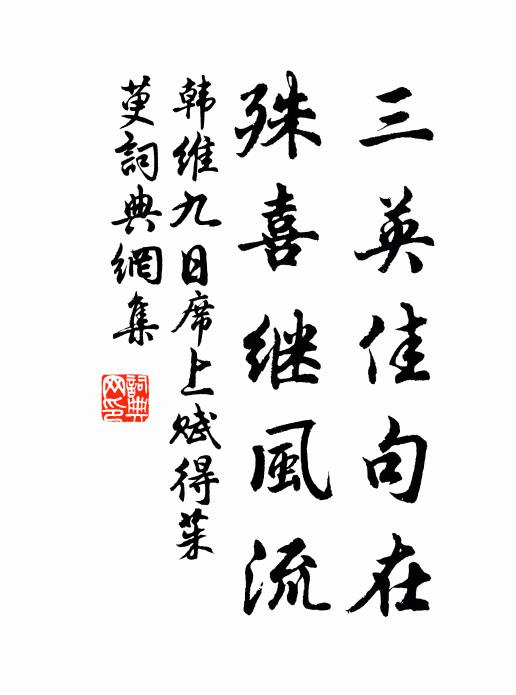 三英佳句在
殊喜继風流
韩維九日席上赋得茱
萸詞典網集
詞典网印